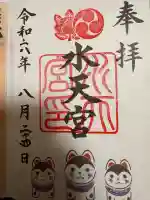 奉拝
水天宮
令和六年 八月二十四日